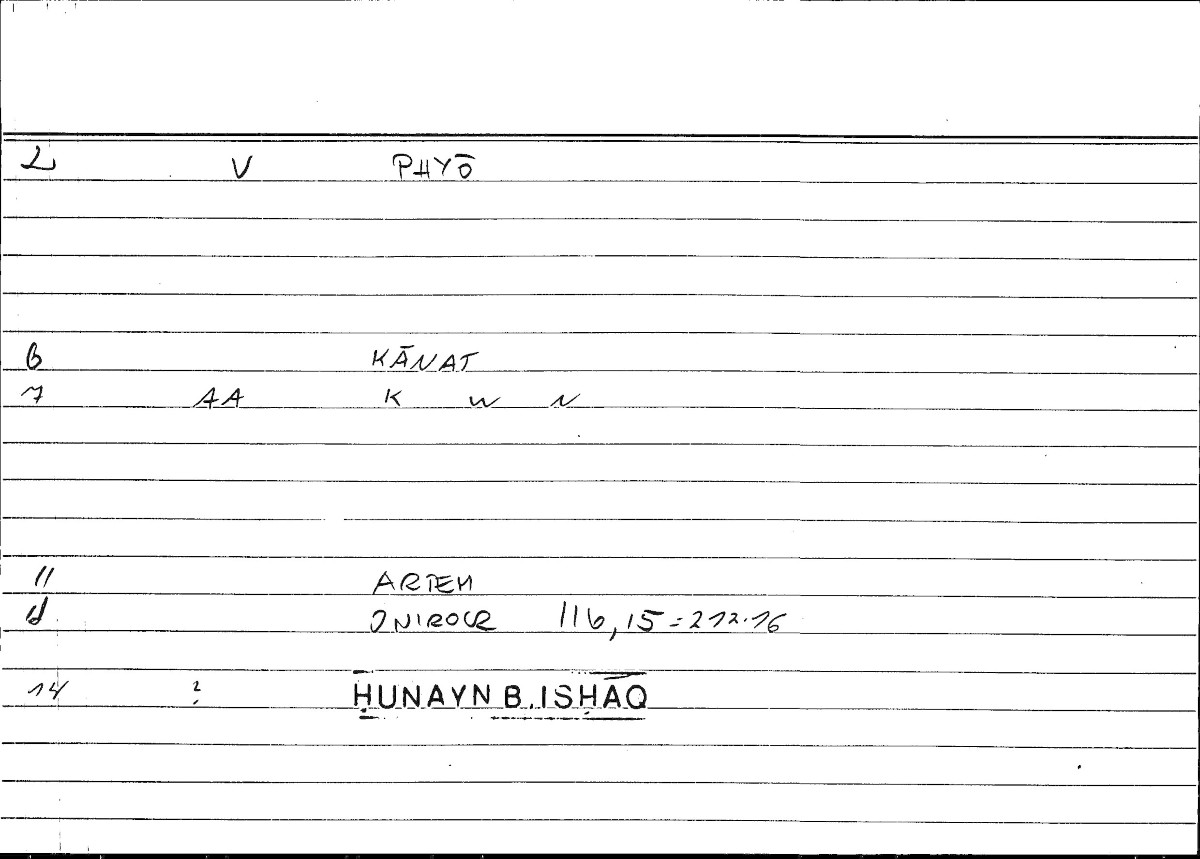 2 V PHYŌ
6 KĀNAT
7 AA K W N
11 ARTEM
12 ONIROCR 116,15 = 212.16
14 ? ḤUNAYN B. ISḤĀQ